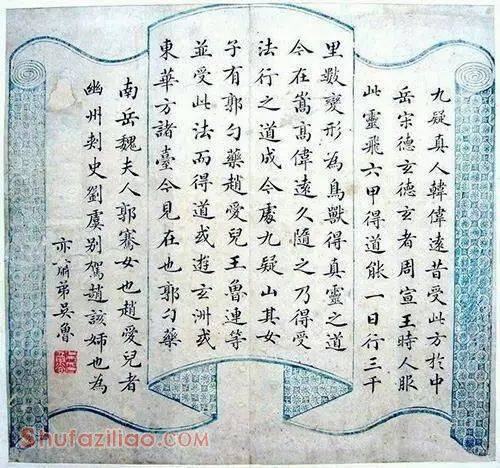 九疑真人韓偉遠昔受此方於中
岳宗德玄德玄者周宣王時人服
此靈飛六甲得道能一日行三千
里數變形為鳥獸得真靈之道
今在嵩高偉遠久隨之乃得受
法行之道成今處九疑山其女
子有郭勺藥趙愛兒王魯連等
並受此法而得道或遊玄洲或
東華方諸臺今見在也郭勺藥
南岳魏夫人郭騫女也趙愛兒者
幽州刺史劉虞別駕趙該姊也為
亦弟吳魯
Shufaziliao.COM